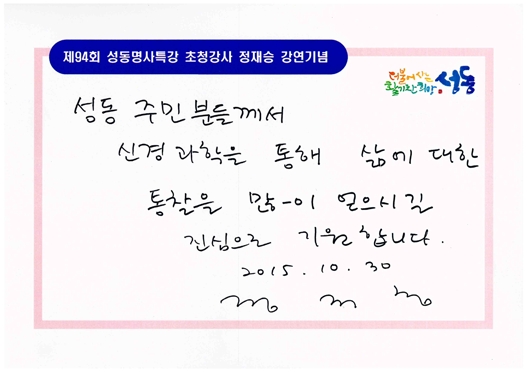 제94회 성동명사특강 초청강사 정재승 강연기념
더불어 사는
활기찬 희망 성동
성동 주민분들께서
신경과학을 통해 삶에 대한
통찰을 많이 얻으시길
진심으로 기원합니다.
2015. 10. 30